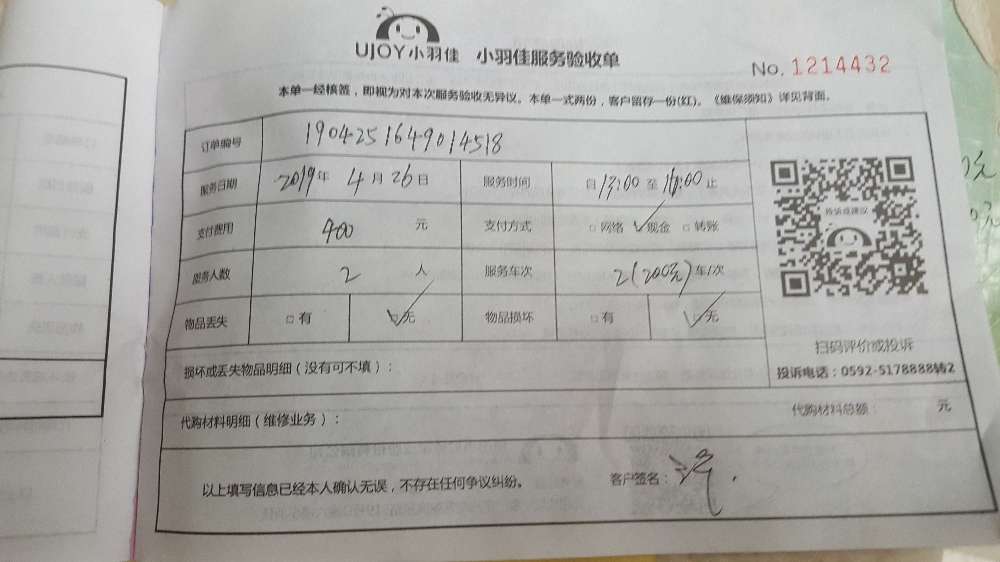 UJOY小羽佳 小羽佳服务验收单
No. 1214432
本单一经核签，即视为对本次服务验收无异议。本单一式两份，客户留存一份(红)。《维保须知》详见背面。
订单编号 1904251649014518
服务日期 2019年4月26日 服务时间 自13:00至 :00止
支付费用 400 元 支付方式 □网络 ✓现金 □转账
服务人数 2 人 服务车次 2(200元)车/次
物品丢失 □有 ✓无 物品损坏 □有 ✓无
投诉或建议
扫码评价或投诉
投诉电话：0592-5178888转2
损坏或丢失物品明细（没有可不填）：
代购材料明细（维修业务）： 代购材料总额： 元
以上填写信息已经本人确认无误，不存在任何争议纠纷。 客户签名：